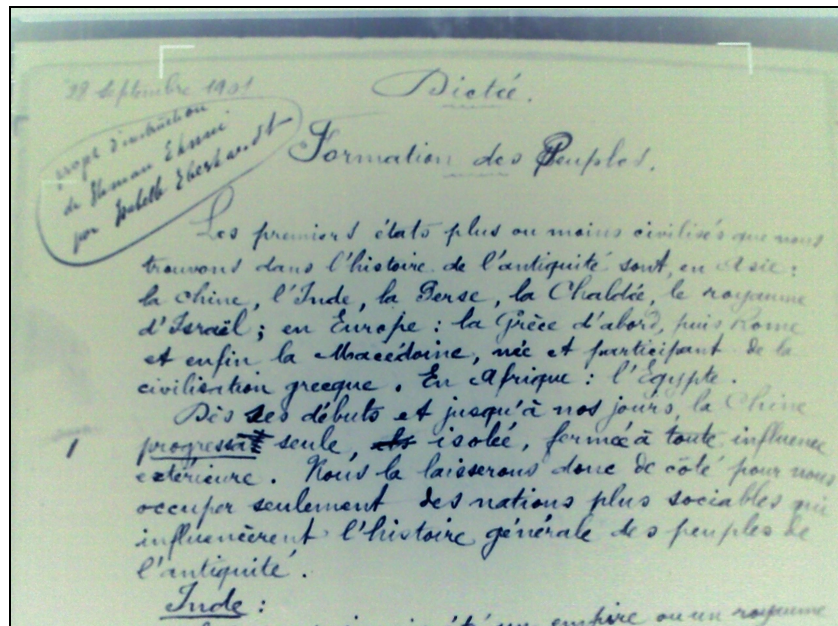 28 Septembre 1901
Dictée.
projet d'instruction
de Sliman Ehnni
par Isabelle Eberhardt
Formation des Peuples.
Les premiers états plus ou moins civilisés que nous
trouvons dans l'histoire de l'antiquité sont, en Asie :
la Chine, l'Inde, la Perse, la Chaldée, le royaume
d'Israël ; en Europe : la Grèce d'abord, puis Rome
et enfin la Macédoine, née et participant de la
civilisation grecque. En Afrique : l'Égypte.
Dès ses débuts et jusqu'à nos jours, la Chine
progressa seule, isolée, fermée à toute influence
extérieure. Nous la laisserons donc de côté pour nous
occuper seulement des nations plus sociables qui
influencèrent l'histoire générale des peuples de
l'antiquité.
Inde :
un empire ou un royaume